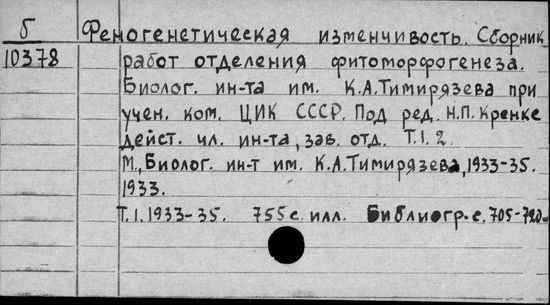 б Феногенетическая изменчивость. Сборник
10378 работ отделения фитоморфогенеза.
Биолог. ин-та им. К.А.Тимирязева при
учен. ком. ЦИК СССР. Под ред. Н.П.Кренке
дейст. чл. ин-та, зав. отд. Т.1. 2.
М., Биолог. ин-т им. К.А.Тимирязева, 1933-35.
1933.
Т.1. 1933-35. 755 с. илл. Библиогр. с. 705-720